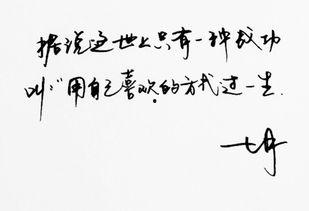 据说这世上只有一种成功
叫“用自己喜欢的方式过一生.
七月